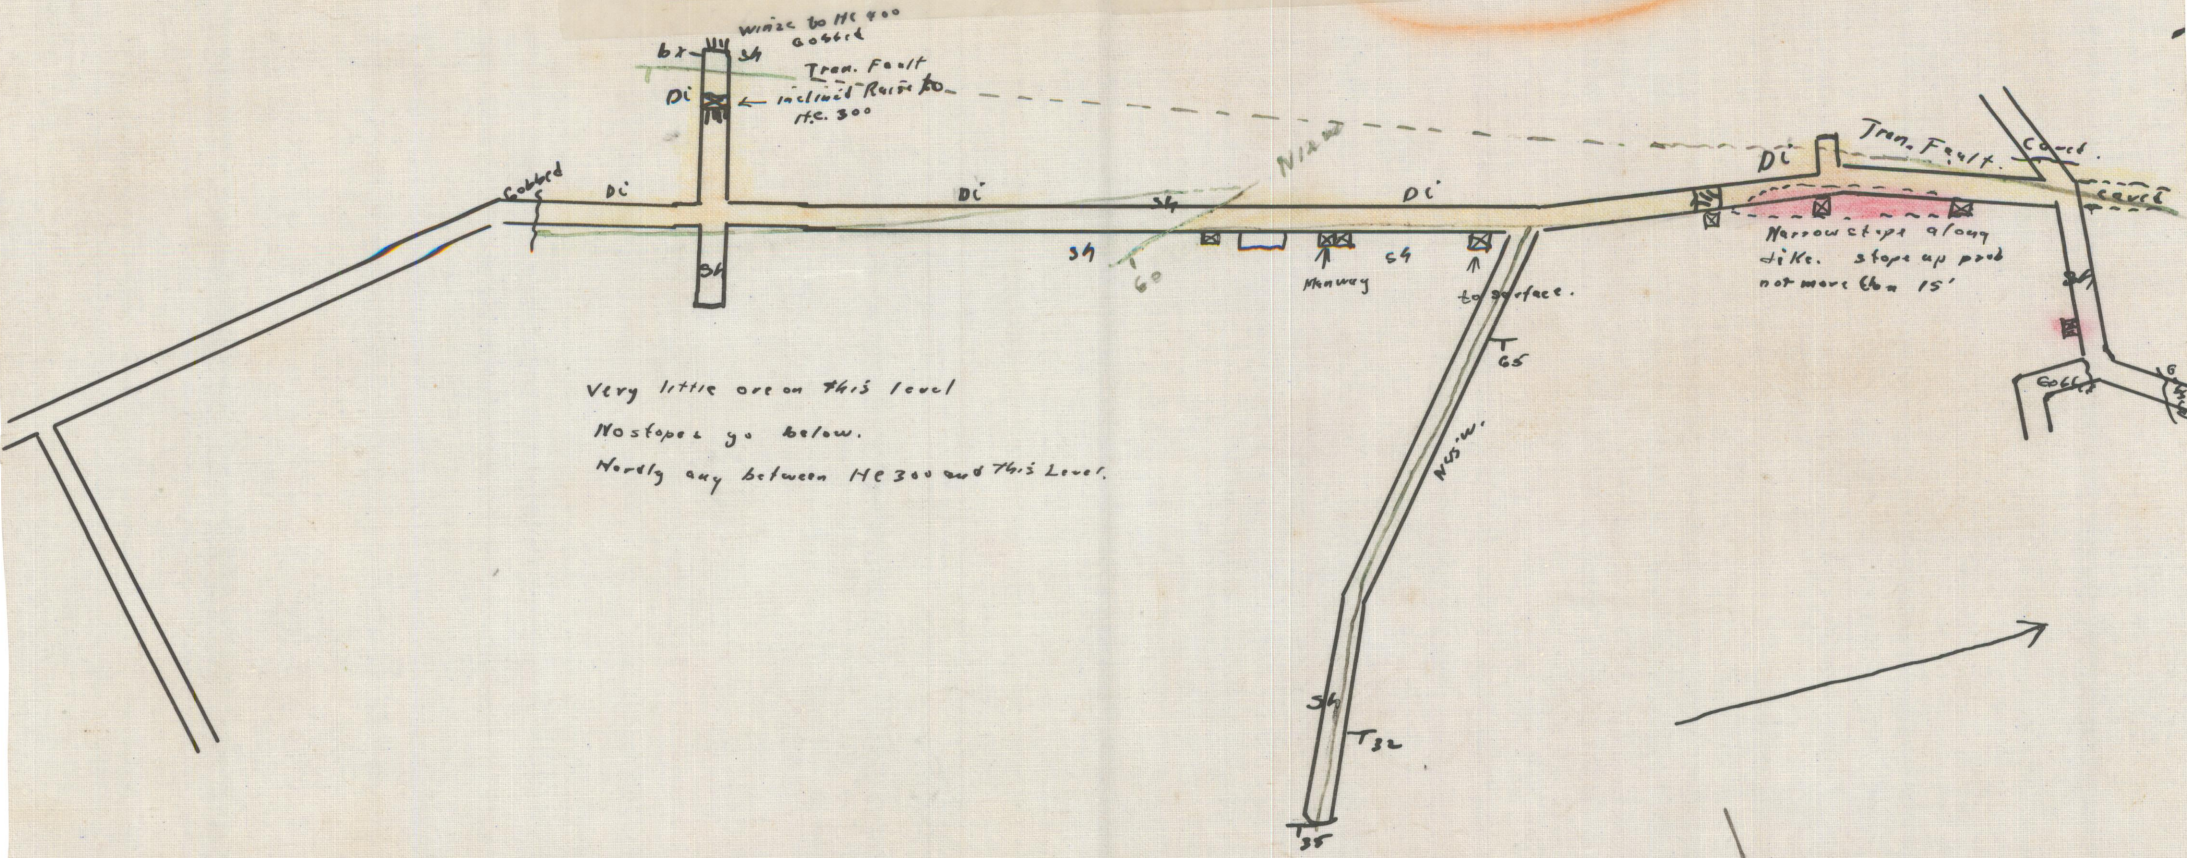 Winze to HC 400
Gobbed
bx
Sh
Tran. Fault
Di
← inclined Raise to
H.C. 300
N12W
Tran. Fault.
Caved.
Di
Gobbed
Di
Di
Sh
Di
caved
Sh
Sh
60
Sh
Manway
to surface.
Narrow stope along
dike. stope up prob
not more than 15'
Sh
65
Gobbed
Very little ore on this level
No stopes go below.
Hardly any between HC 300 and this Level.
N45°W.
Sh
32
35